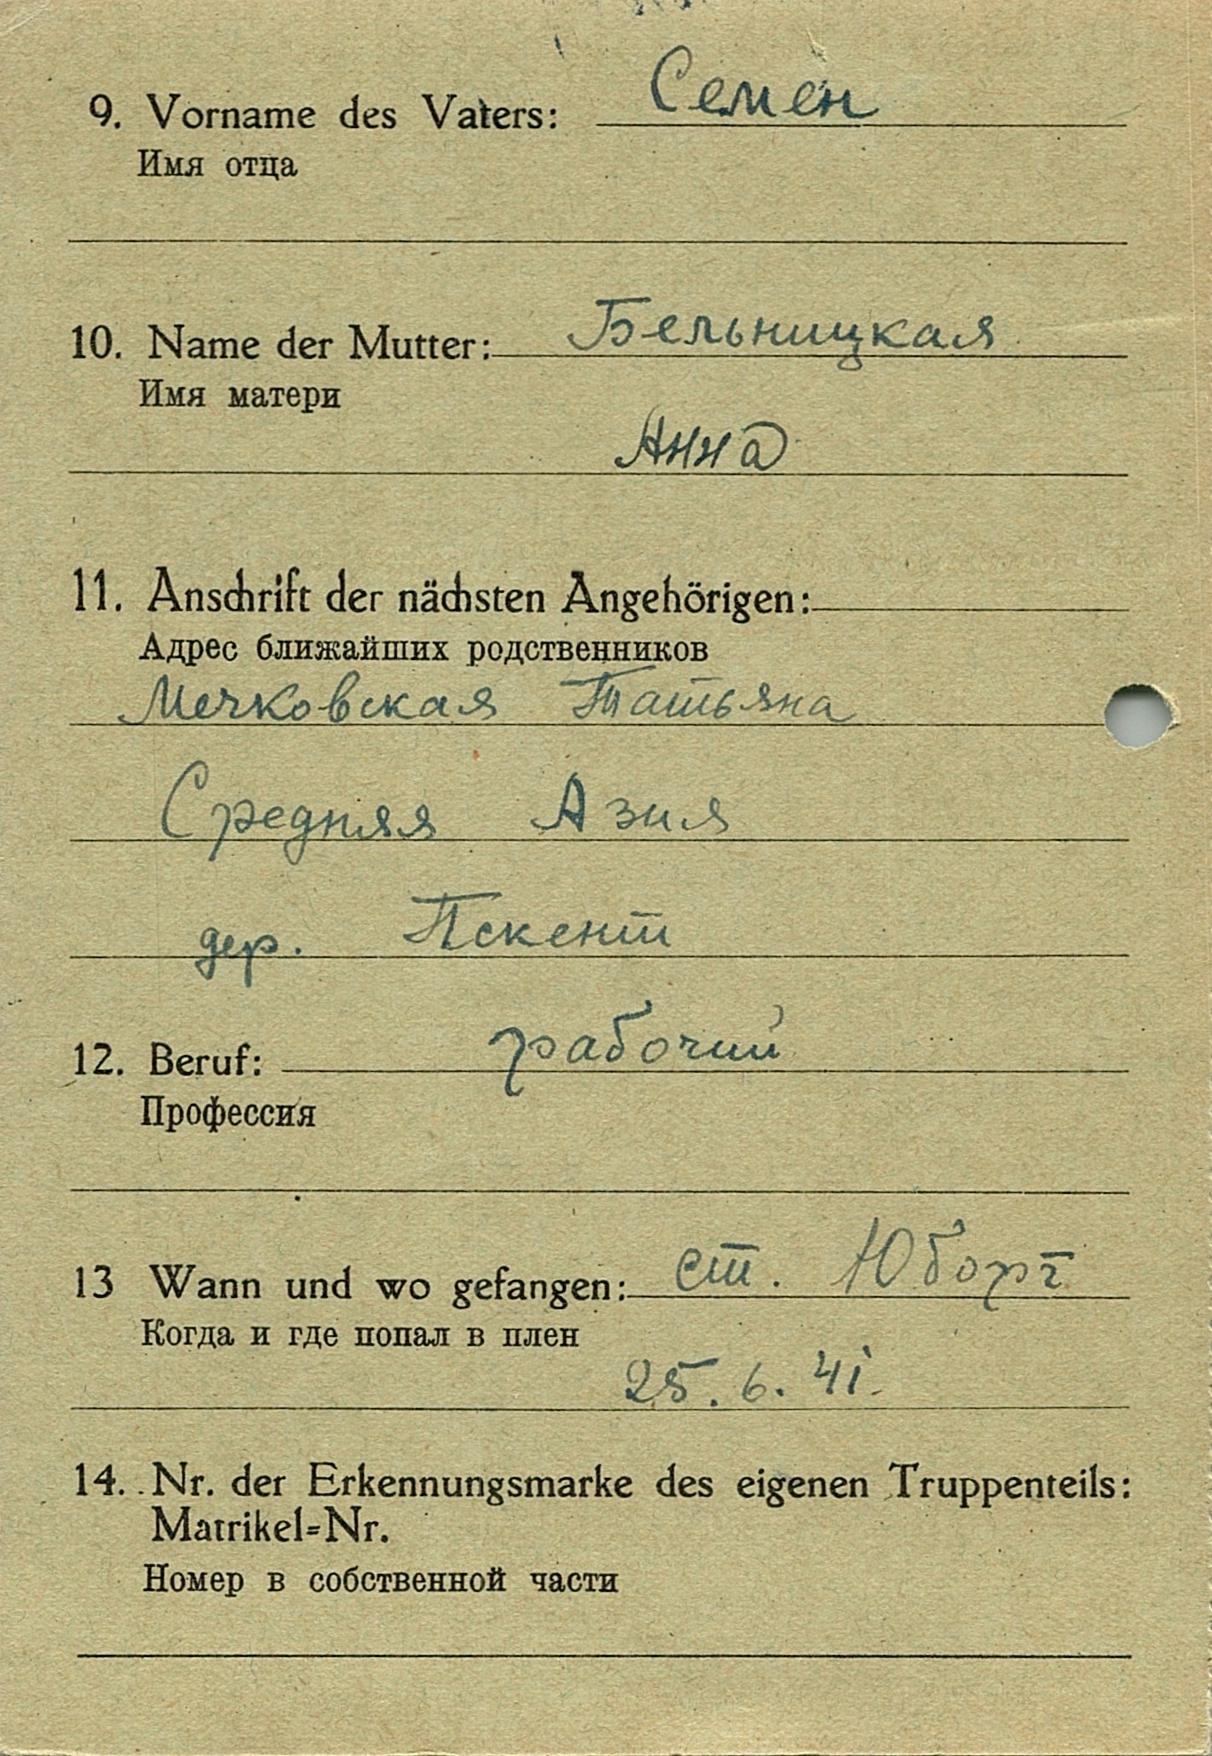 9. Vorname des Vaters: Семен
Имя отца
10. Name der Mutter: Бельницкая
Имя матери
Анна
11. Anschrift der nächsten Angehörigen:
Адрес ближайших родственников
Мечковская Татьяна
Средняя Азия
дер. Пскент
12. Beruf: рабочий
Профессия
13 Wann und wo gefangen: ст. Юборг
Когда и где попал в плен
25. 6. 41.
14. Nr. der Erkennungsmarke des eigenen Truppenteils:
Matrikel=Nr.
Номер в собственной части